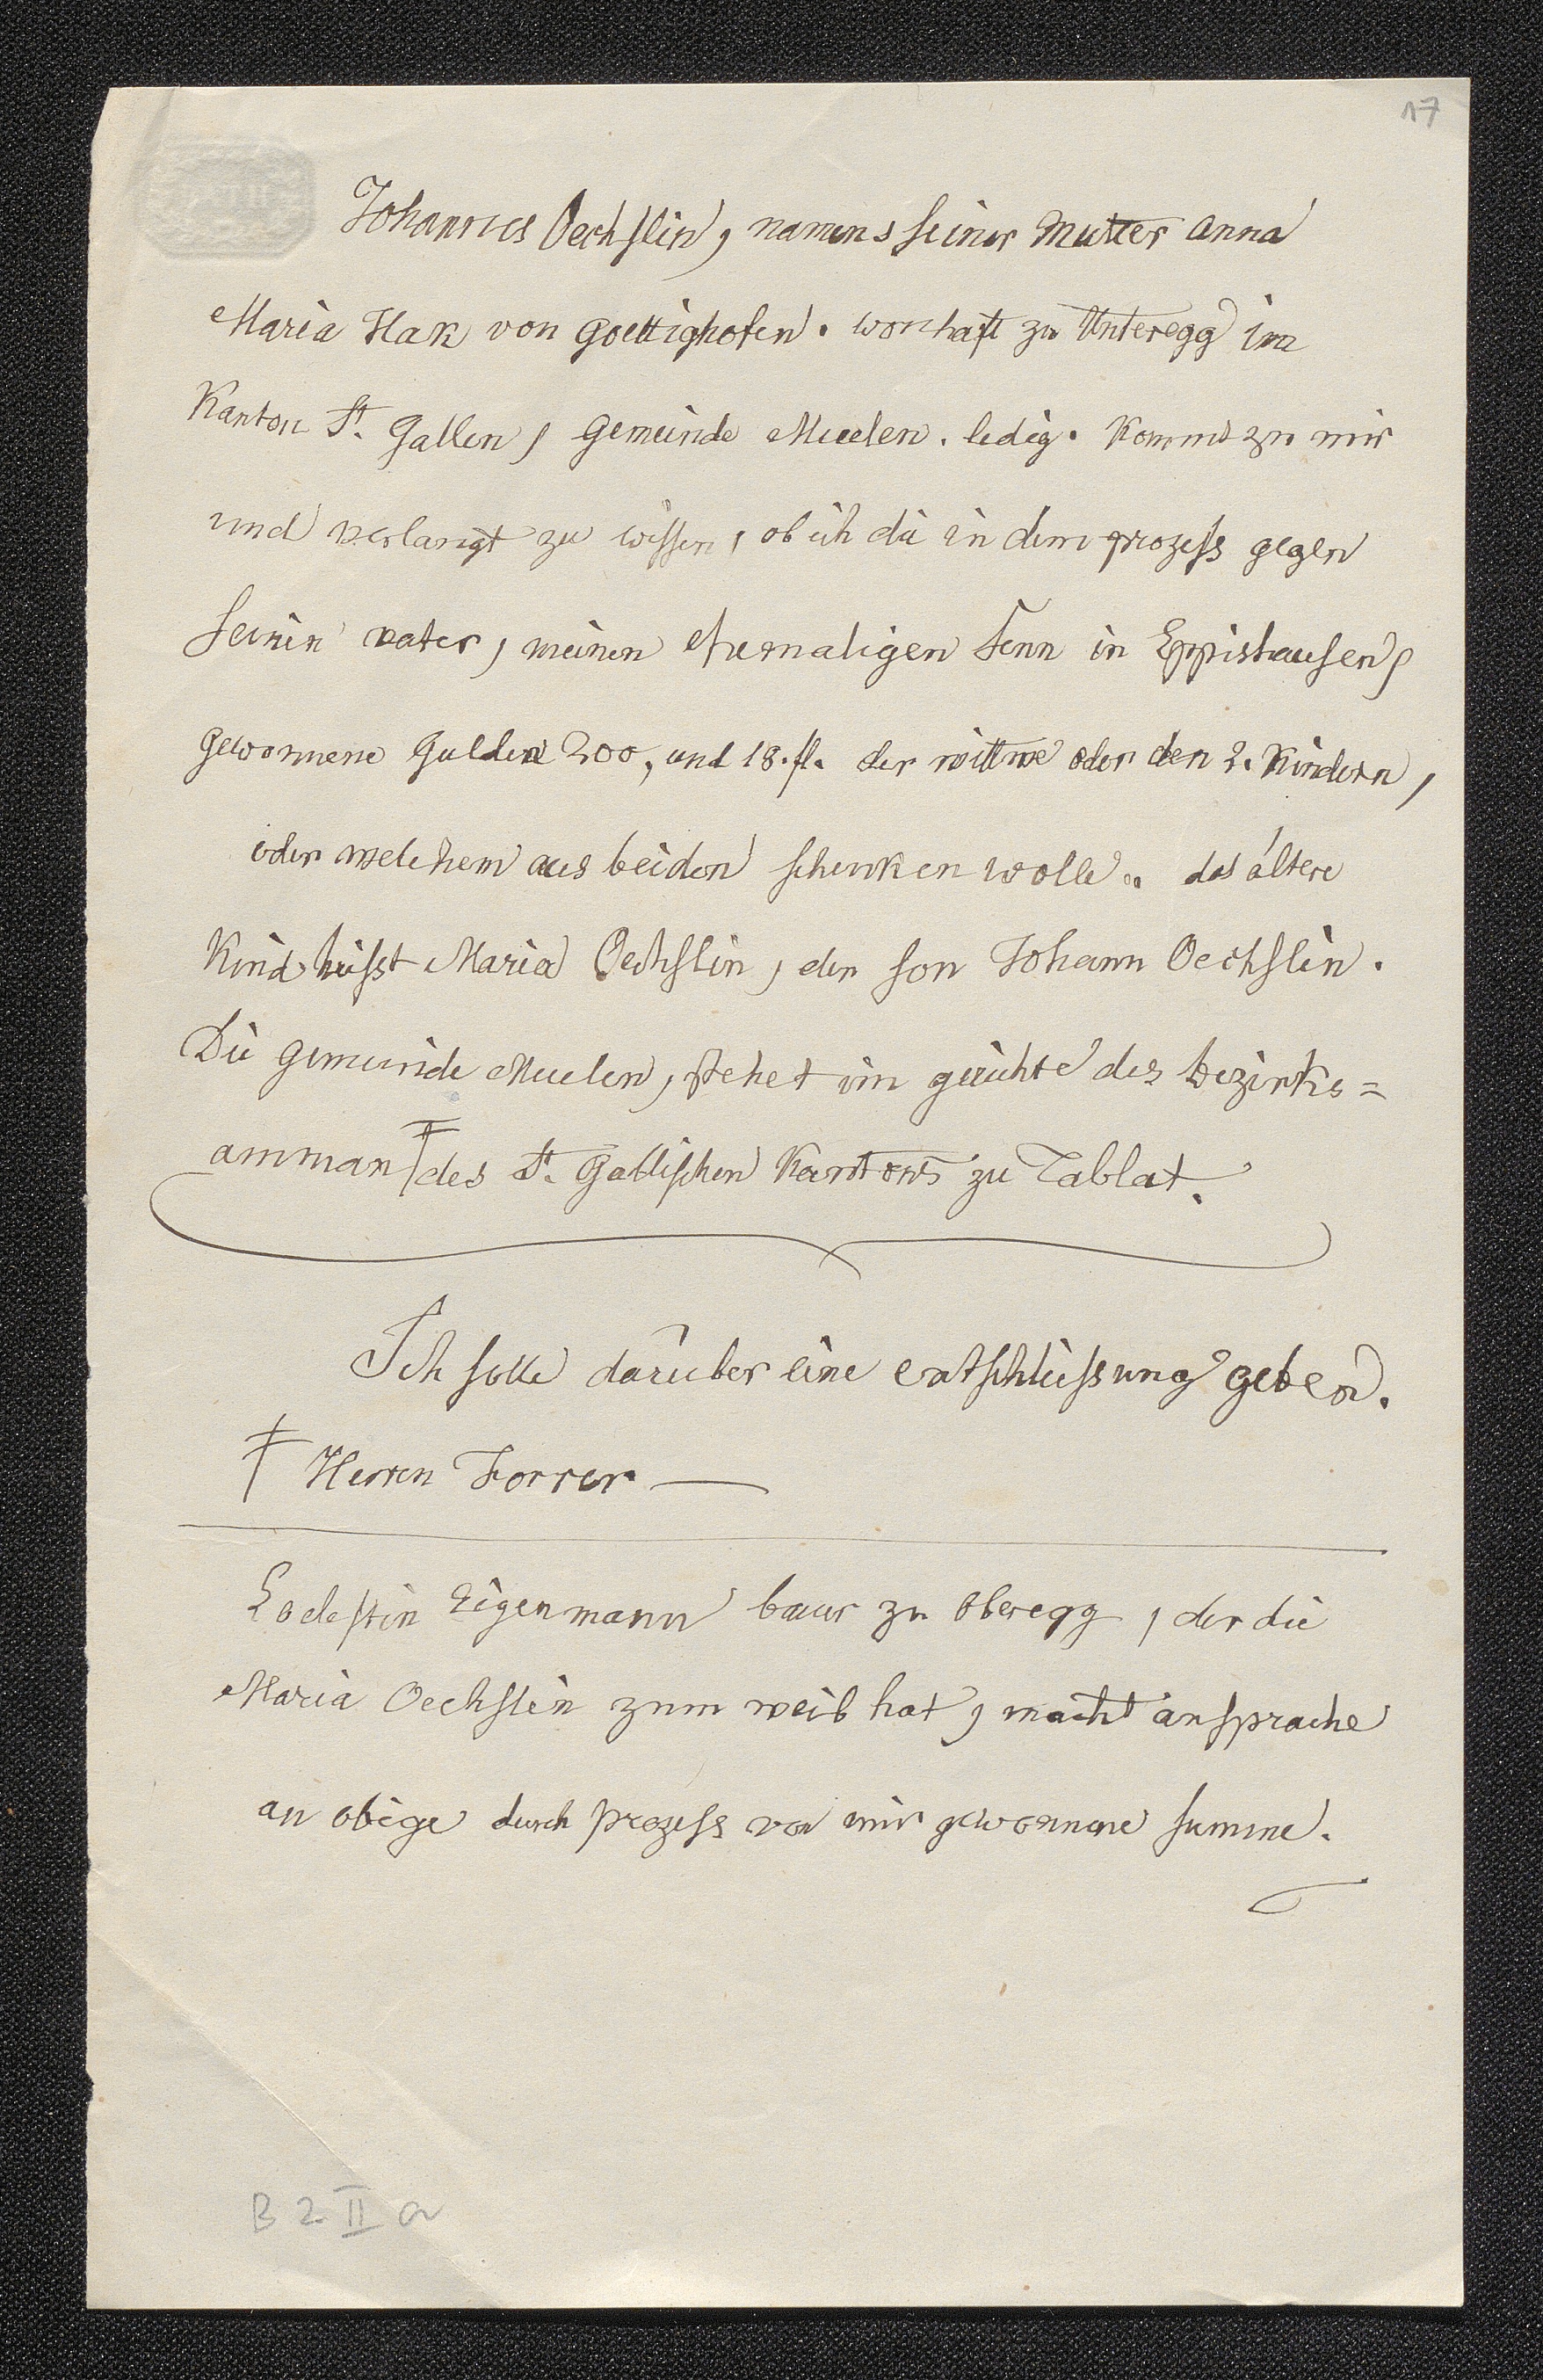 17
Johannes Oechslin, namens seiner Mutter anna
Maria Hak von Goettighofen. wonhaft zu Unteregg im
Kanton St. Gallen, Gemeinde Muelen. ledig. kommt zu mir
und verlangt zu wissen, ob ich die in dem prozess gegen
seinen vater, meinen ehemaligen senn in Eppishausen,
gewonnene Gulden 200, und 18. fl. der wittwe oder den 2. kindern,
oder welchem aus beiden schenken wolle. das ältere
Kind heisst Maria Oechslin, der son Johann Oechslin.
Die gemeinde Muelen, stehet im gerichte des bezirks=
amman ‡ des St. Gallischen Kantons zu Tablat.
Ich solle darüber eine entschliessung geben.
‡ Herren Forrer —
Coelestin Eigenmann baur zu Oberegg, der die
Maria Oechslin zum weib hat, macht ansprache
an obige durch prozess von mir gewonnene summe.
B 2 II a